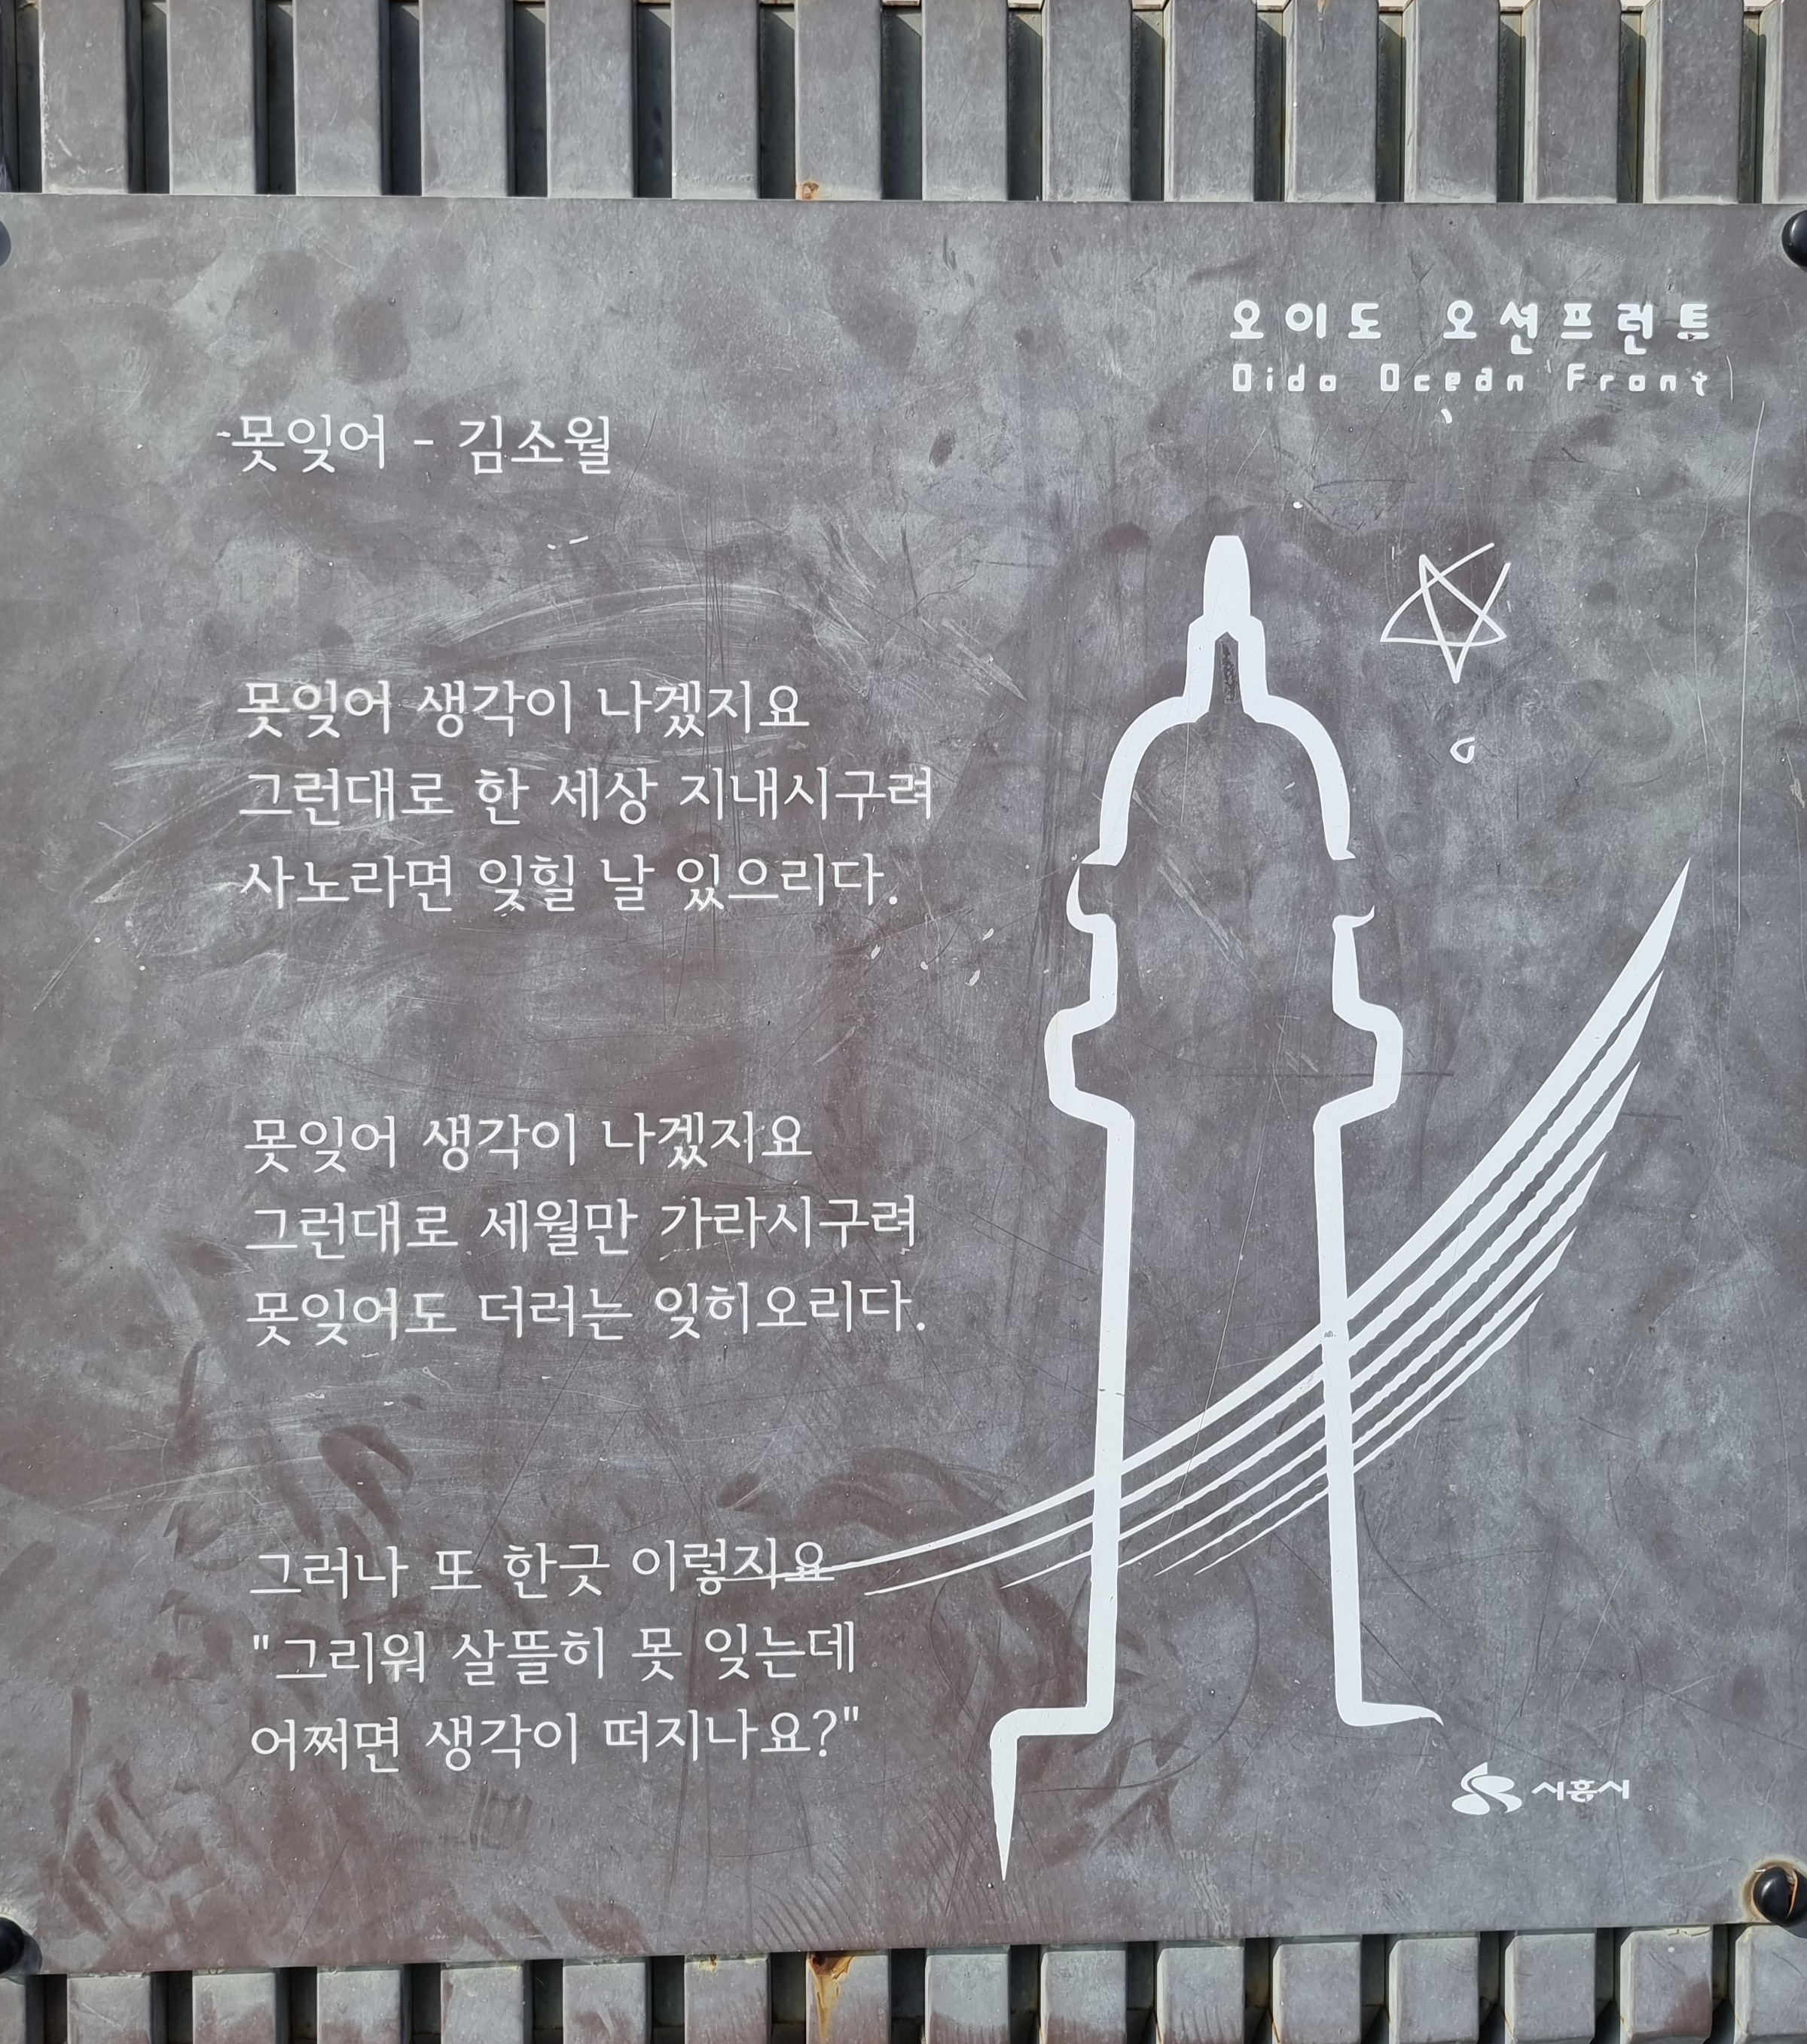 오이도 오션프런트
Oido Ocean Front
못잊어 - 김소월
못잊어 생각이 나겠지요
그런대로 한 세상 지내시구려
사노라면 잊힐 날 있으리다.
못잊어 생각이 나겠지요
그런대로 세월만 가라시구려
못잊어도 더러는 잊히오리다.
그러나 또 한긋 이렇지요
"그리워 살뜰히 못 잊는데
어쩌면 생각이 떠지나요?"
시흥시